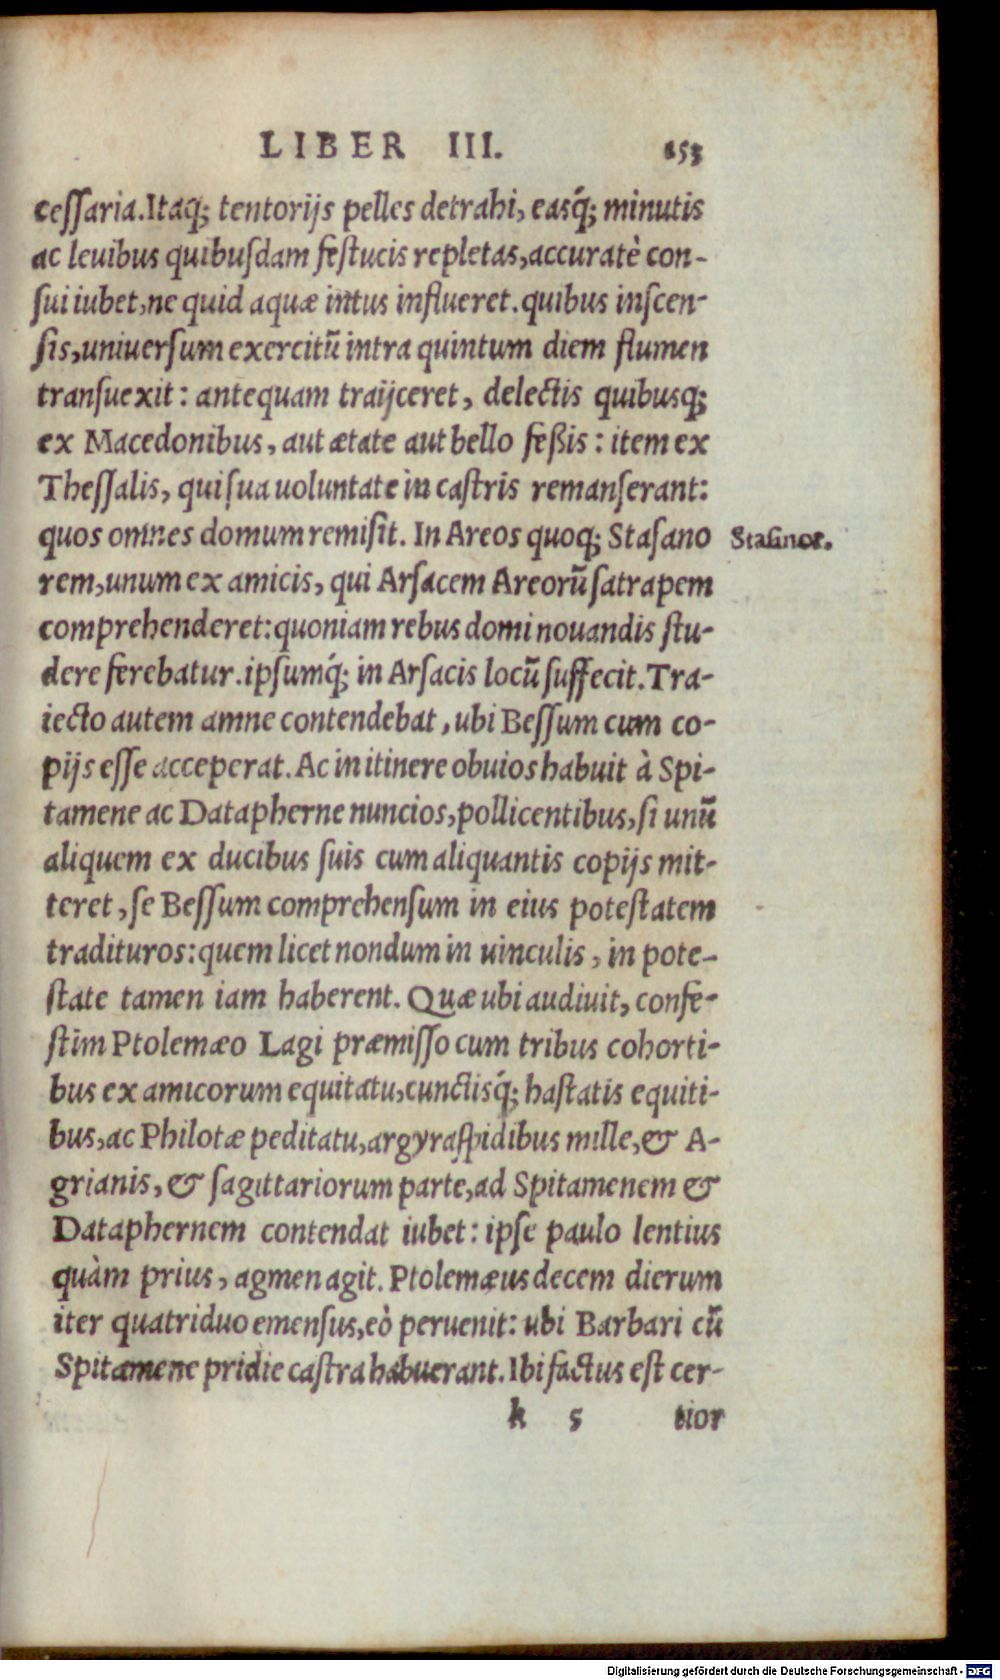 LIBER III. 153
cessaria. Itaq; tentorijs pelles detrahi, easq́; minutis
ac leuibus quibusdam festucis repletas, accuratè con-
sui iubet, ne quid aquæ intus influeret. quibus inscen-
sis, uniuersum exercitū intra quintum diem flumen
transuexit: antequam traijceret, delectis quibusq;
ex Macedonibus, aut ætate aut bello feßis: item ex
Thessalis, qui sua uoluntate in castris remanserant:
quos omnes domum remisit. In Areos quoq; Stasano
Stasinor.
rem, unum ex amicis, qui Arsacem Areorū satrapem
comprehenderet: quoniam rebus domi nouandis stu-
dere ferebatur. ipsumq́; in Arsacis locū suffecit. Tra-
iecto autem amne contendebat, ubi Bessum cum co-
pijs esse acceperat. Ac in itinere obuios habuit à Spi-
tamene ac Datapherne nuncios, pollicentibus, si unū
aliquem ex ducibus suis cum aliquantis copijs mit-
teret, se Bessum comprehensum in eius potestatem
tradituros: quem licet nondum in uinculis, in pote-
state tamen iam haberent. Quæ ubi audiuit, confe-
stim Ptolemæo Lagi præmisso cum tribus cohorti-
bus ex amicorum equitatu, cunctisq́; hastatis equiti-
bus, ac Philotæ peditatu, argyraspidibus mille, & A-
grianis, & sagittariorum parte, ad Spitamenem &
Dataphernem contendat iubet: ipse paulo lentius
quàm prius, agmen agit. Ptolemæus decem dierum
iter quatriduo emensus, eò peruenit: ubi Barbari cū
Spitamene pridie castra habuerant. Ibi factus est cer-
k 5 tior
Digitalisierung gefördert durch die Deutsche Forschungsgemeinschaft - DFG